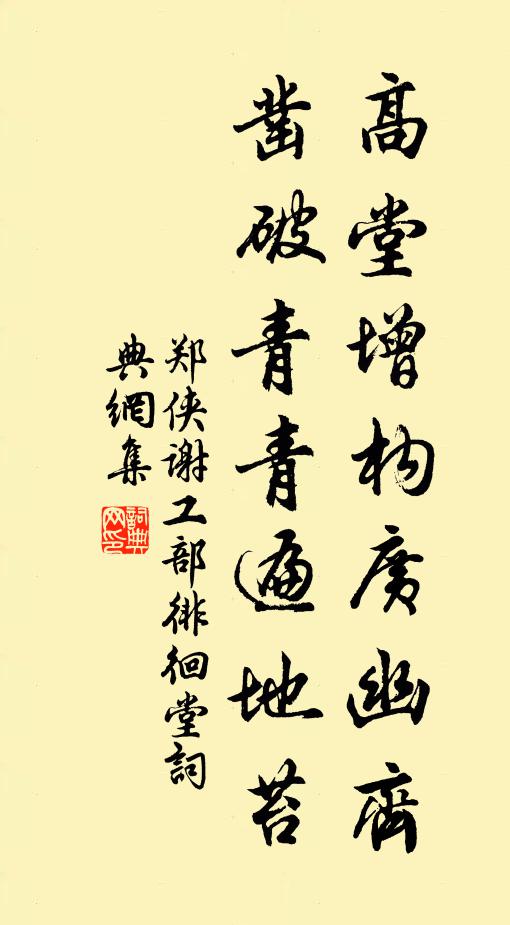 高堂增构廣幽齊
凿破青青遍地苔
郑侠谢工部徘徊堂詞
典網集
詞典网印